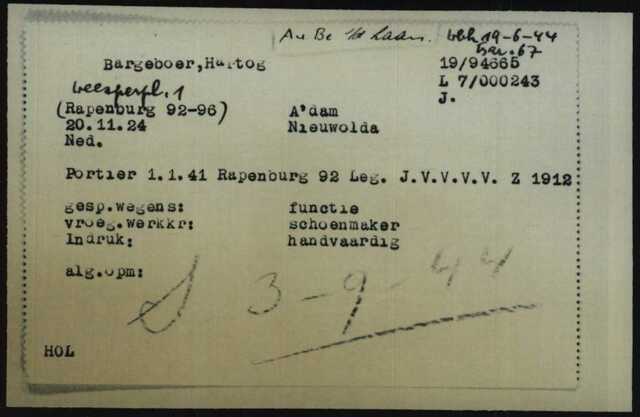 Au Be v/d Laan. bbk 19-6-44
bar. 67
Bargeboer, Hartog 19/94665
L 7/000243
J.
Weesperpl. 1
(Rapenburg 92-96) A'dam
20.11.24 Nieuwolda
Ned.
Portier 1.1.41 Rapenburg 92 Leg. J.V.V.V.V. Z 1912
gesp.wegens: functie
vroeg.werkkr: schoenmaker
Indruk: handvaardig
alg.opm:
3-9-44
HOL